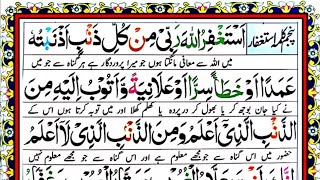 پنجم کلمہ استغفار
اَسْتَغْفِرُ اللهَ رَبِّیْ مِنْ كُلِّ ذَنْۢبٍ اَذْنَبْتُهٗ
میں اللہ سے معافی مانگتا ہوں جو میرا پروردگار ہے ہر گناہ سے جو میں
عَمَدًا اَوْ خَطَأً سِرًّا اَوْ عَلَانِیَةً وَّاَتُوْبُ اِلَیْهِ مِنَ
نے کیا جان بوجھ کر یا بھول کر درپردہ یا کھلم کھلا اور میں توبہ کرتا ہوں اس کے
الذَّنْۢبِ الَّذِیْ اَعْلَمُ وَمِنَ الذَّنْۢبِ الَّذِیْ لَا اَعْلَمُ
حضور میں اس گناہ سے جو مجھے معلوم ہے اور اس گناہ سے جو مجھے معلوم نہیں